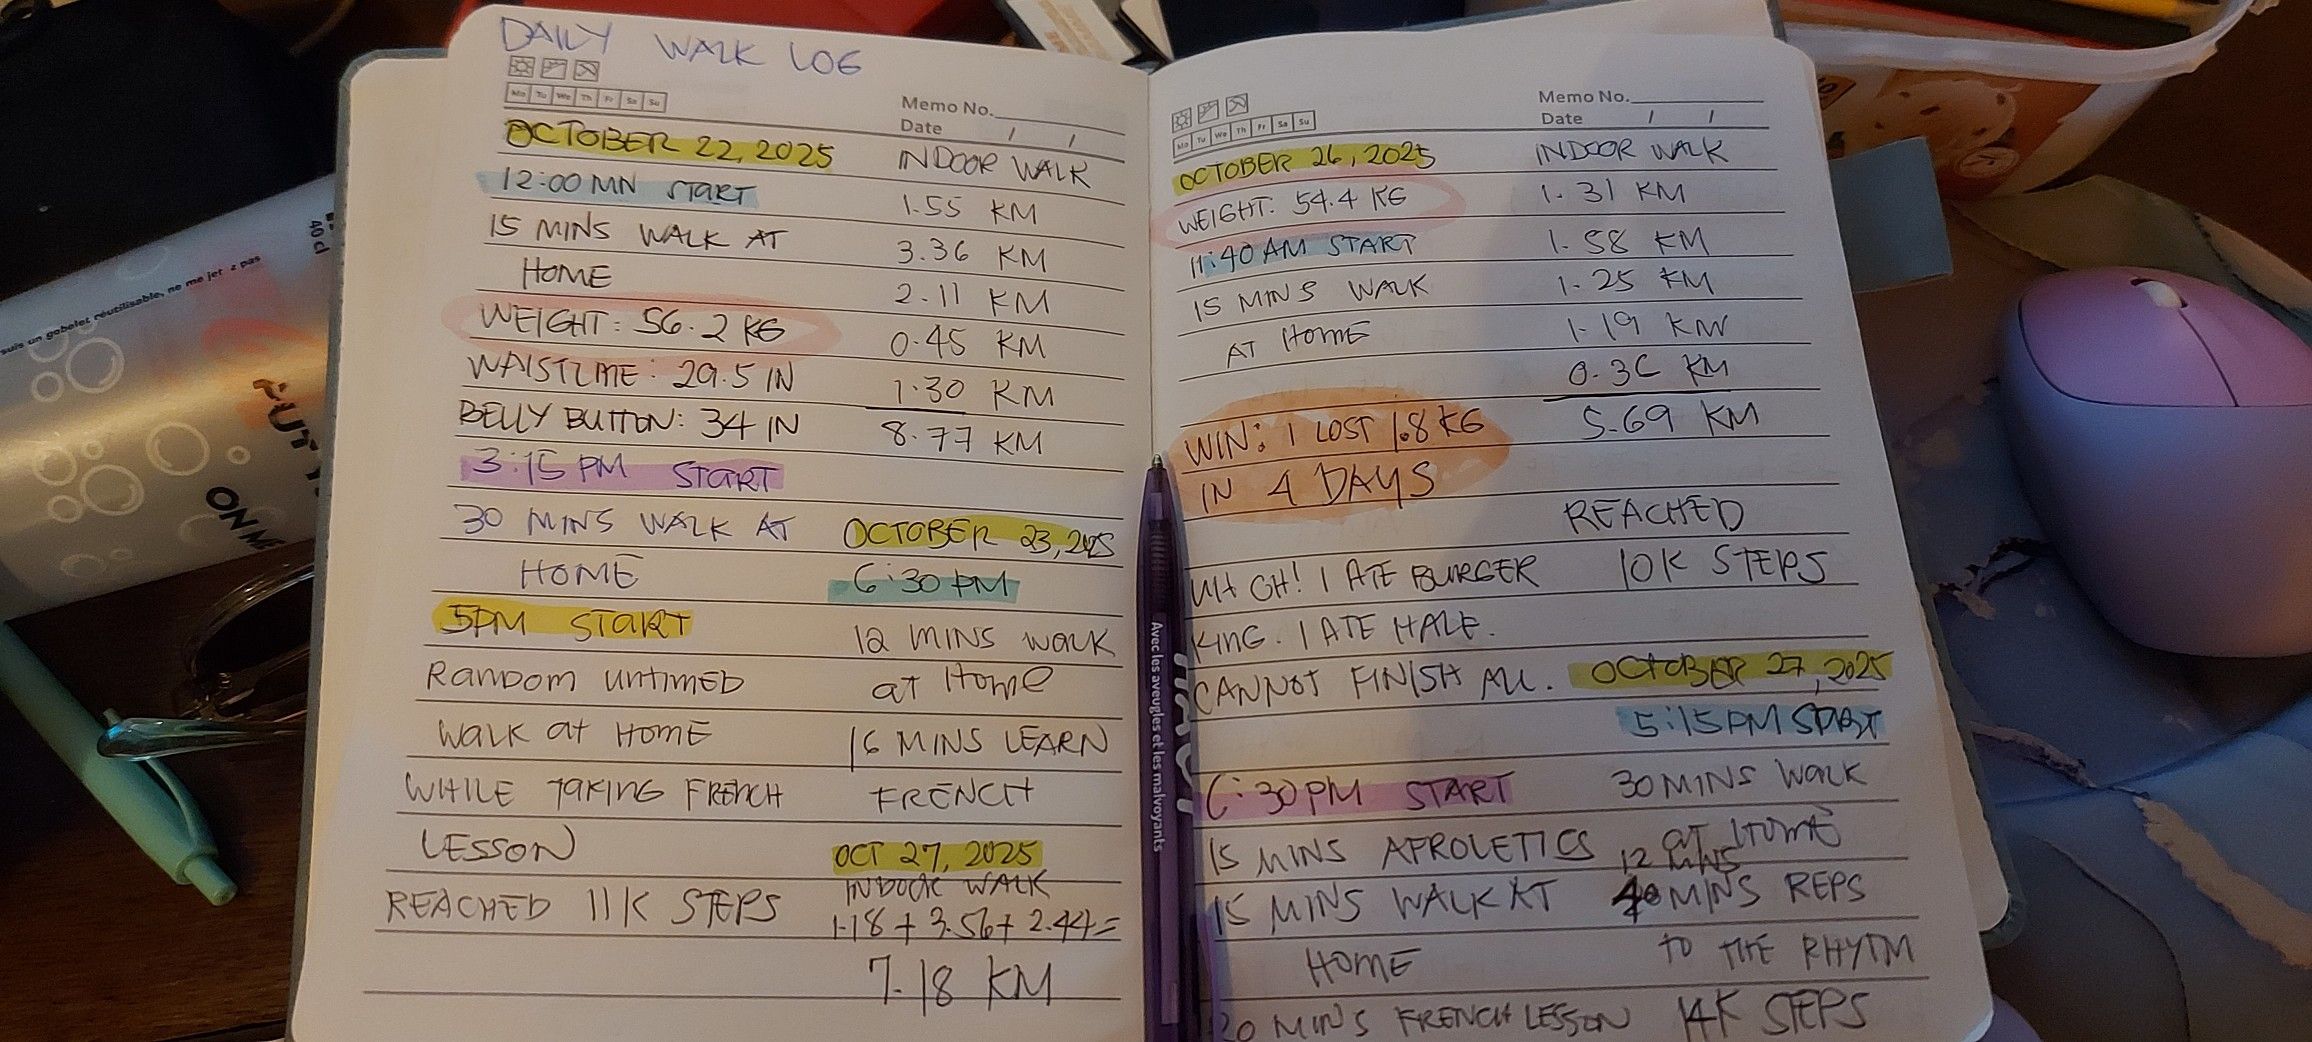 DAILY WALK LOG
Mo Tu We Th Fr Sa Su
Memo No.
Date / /
OCTOBER 22, 2025
12:00 MN START
15 MINS WALK AT
HOME
WEIGHT: 56.2 KG
WAISTLINE: 29.5 IN
BELLY BUTTON: 34 IN
3:15 PM START
30 MINS WALK AT
HOME
5PM START
RANDOM UNTIMED
WALK AT HOME
WHILE TAKING FRENCH
LESSON
REACHED 11K STEPS
INDOOR WALK
1.55 KM
3.36 KM
2.11 KM
0.45 KM
1.30 KM
8.77 KM
OCTOBER 23, 2025
6:30 PM
12 MINS WALK
AT HOME
16 MINS LEARN
FRENCH
OCT 27, 2025
INDOOR WALK
1.18 + 3.56 + 2.44 =
7.18 KM
Mo Tu We Th Fr Sa Su
Memo No.
Date / /
OCTOBER 26, 2025
WEIGHT. 54.4 KG
11:40 AM START
15 MINS WALK
AT HOME
WIN: I LOST 1.8 KG
IN 4 DAYS
UH OH! I ATE BURGER
KING. I ATE HALF.
CANNOT FINISH ALL.
6:30PM START
15 MINS AFROLETICS
15 MINS WALK AT
HOME
20 MINS FRENCH LESSON
INDOOR WALK
1.31 KM
1.58 KM
1.25 KM
1.19 KM
0.36 KM
5.69 KM
REACHED
10K STEPS
OCTOBER 27, 2025
5:15PM START
30 MINS WALK
AT HOME
12 MINS
MINS REPS
TO THE RHYTM
14K STEPS
Avec les aveugles et les malvoyants
suis un gobelet réutilisable, ne me jet z pas
40 cl